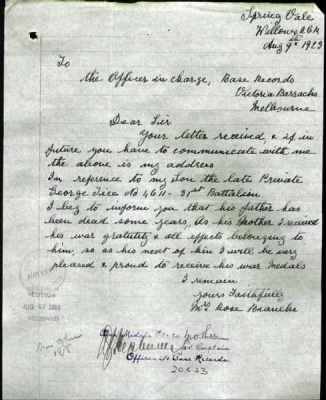 Spring Vale
Willows
Aug 9th 1923
To
The Officer in Charge, Base Records
Victoria Barracks
Melbourne
Dear Sir
Your letter received, & if in
future you have to communicate with me
the above is my address
In reference to my Son the late Private
George Tice No 4611 - 31st Battalion
I beg to inform you that his father has
been dead some years, As his Mother I received
his war gratuity & all effects belonging to
him, so as his next of kin I will be very
pleased & proud to receive his war Medals
I remain
Yours Faithfully
Mrs Rose
SECTION
Captain
Officer i/c Base Records